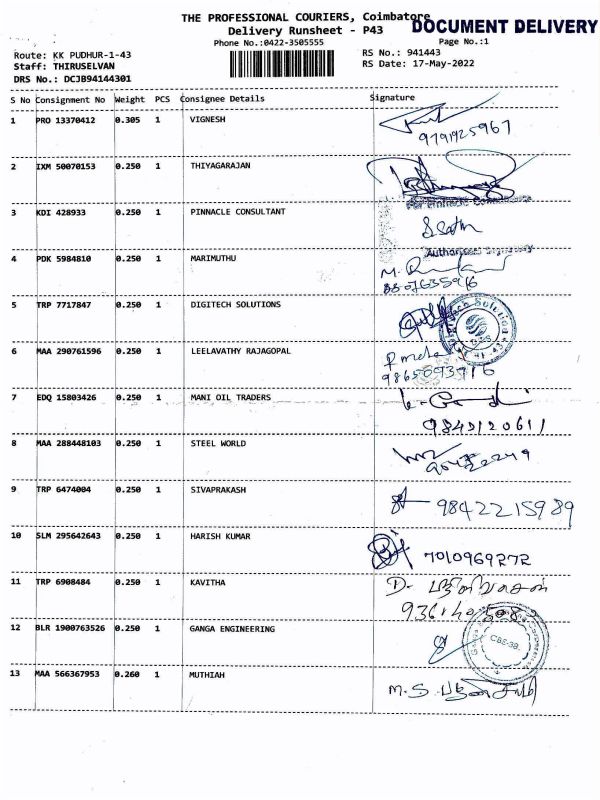 THE PROFESSIONAL COURIERS, Coimbatore
DOCUMENT DELIVERY
Delivery Runsheet - P43
Phone No.:0422-3505555
Page No.:1
Route: KK PUDHUR-1-43
RS No.: 941443
Staff: THIRUSELVAN
RS Date: 17-May-2022
DRS No.: DCJB94144301
S No Consignment No Weight PCS Consignee Details Signature
1 PRO 13370412 0.305 1 VIGNESH
9791925967
2 IXM 50070153 0.250 1 THIYAGARAJAN
3 KDI 428933 0.250 1 PINNACLE CONSULTANT
Authorised Signatory
4 PDK 5984810 0.250 1 MARIMUTHU
8807635916
5 TRP 7717847 0.250 1 DIGITECH SOLUTIONS
6 MAA 290761596 0.250 1 LEELAVATHY RAJAGOPAL
7 EDQ 15803426 0.250 1 MANI OIL TRADERS
9843120611
8 MAA 288448103 0.250 1 STEEL WORLD
9 TRP 6474004 0.250 1 SIVAPRAKASH
9842215989
10 SLM 295642643 0.250 1 HARISH KUMAR
7010969272
11 TRP 6908484 0.250 1 KAVITHA
12 BLR 1900763526 0.250 1 GANGA ENGINEERING
CBE-39.
13 MAA 566367953 0.260 1 MUTHIAH